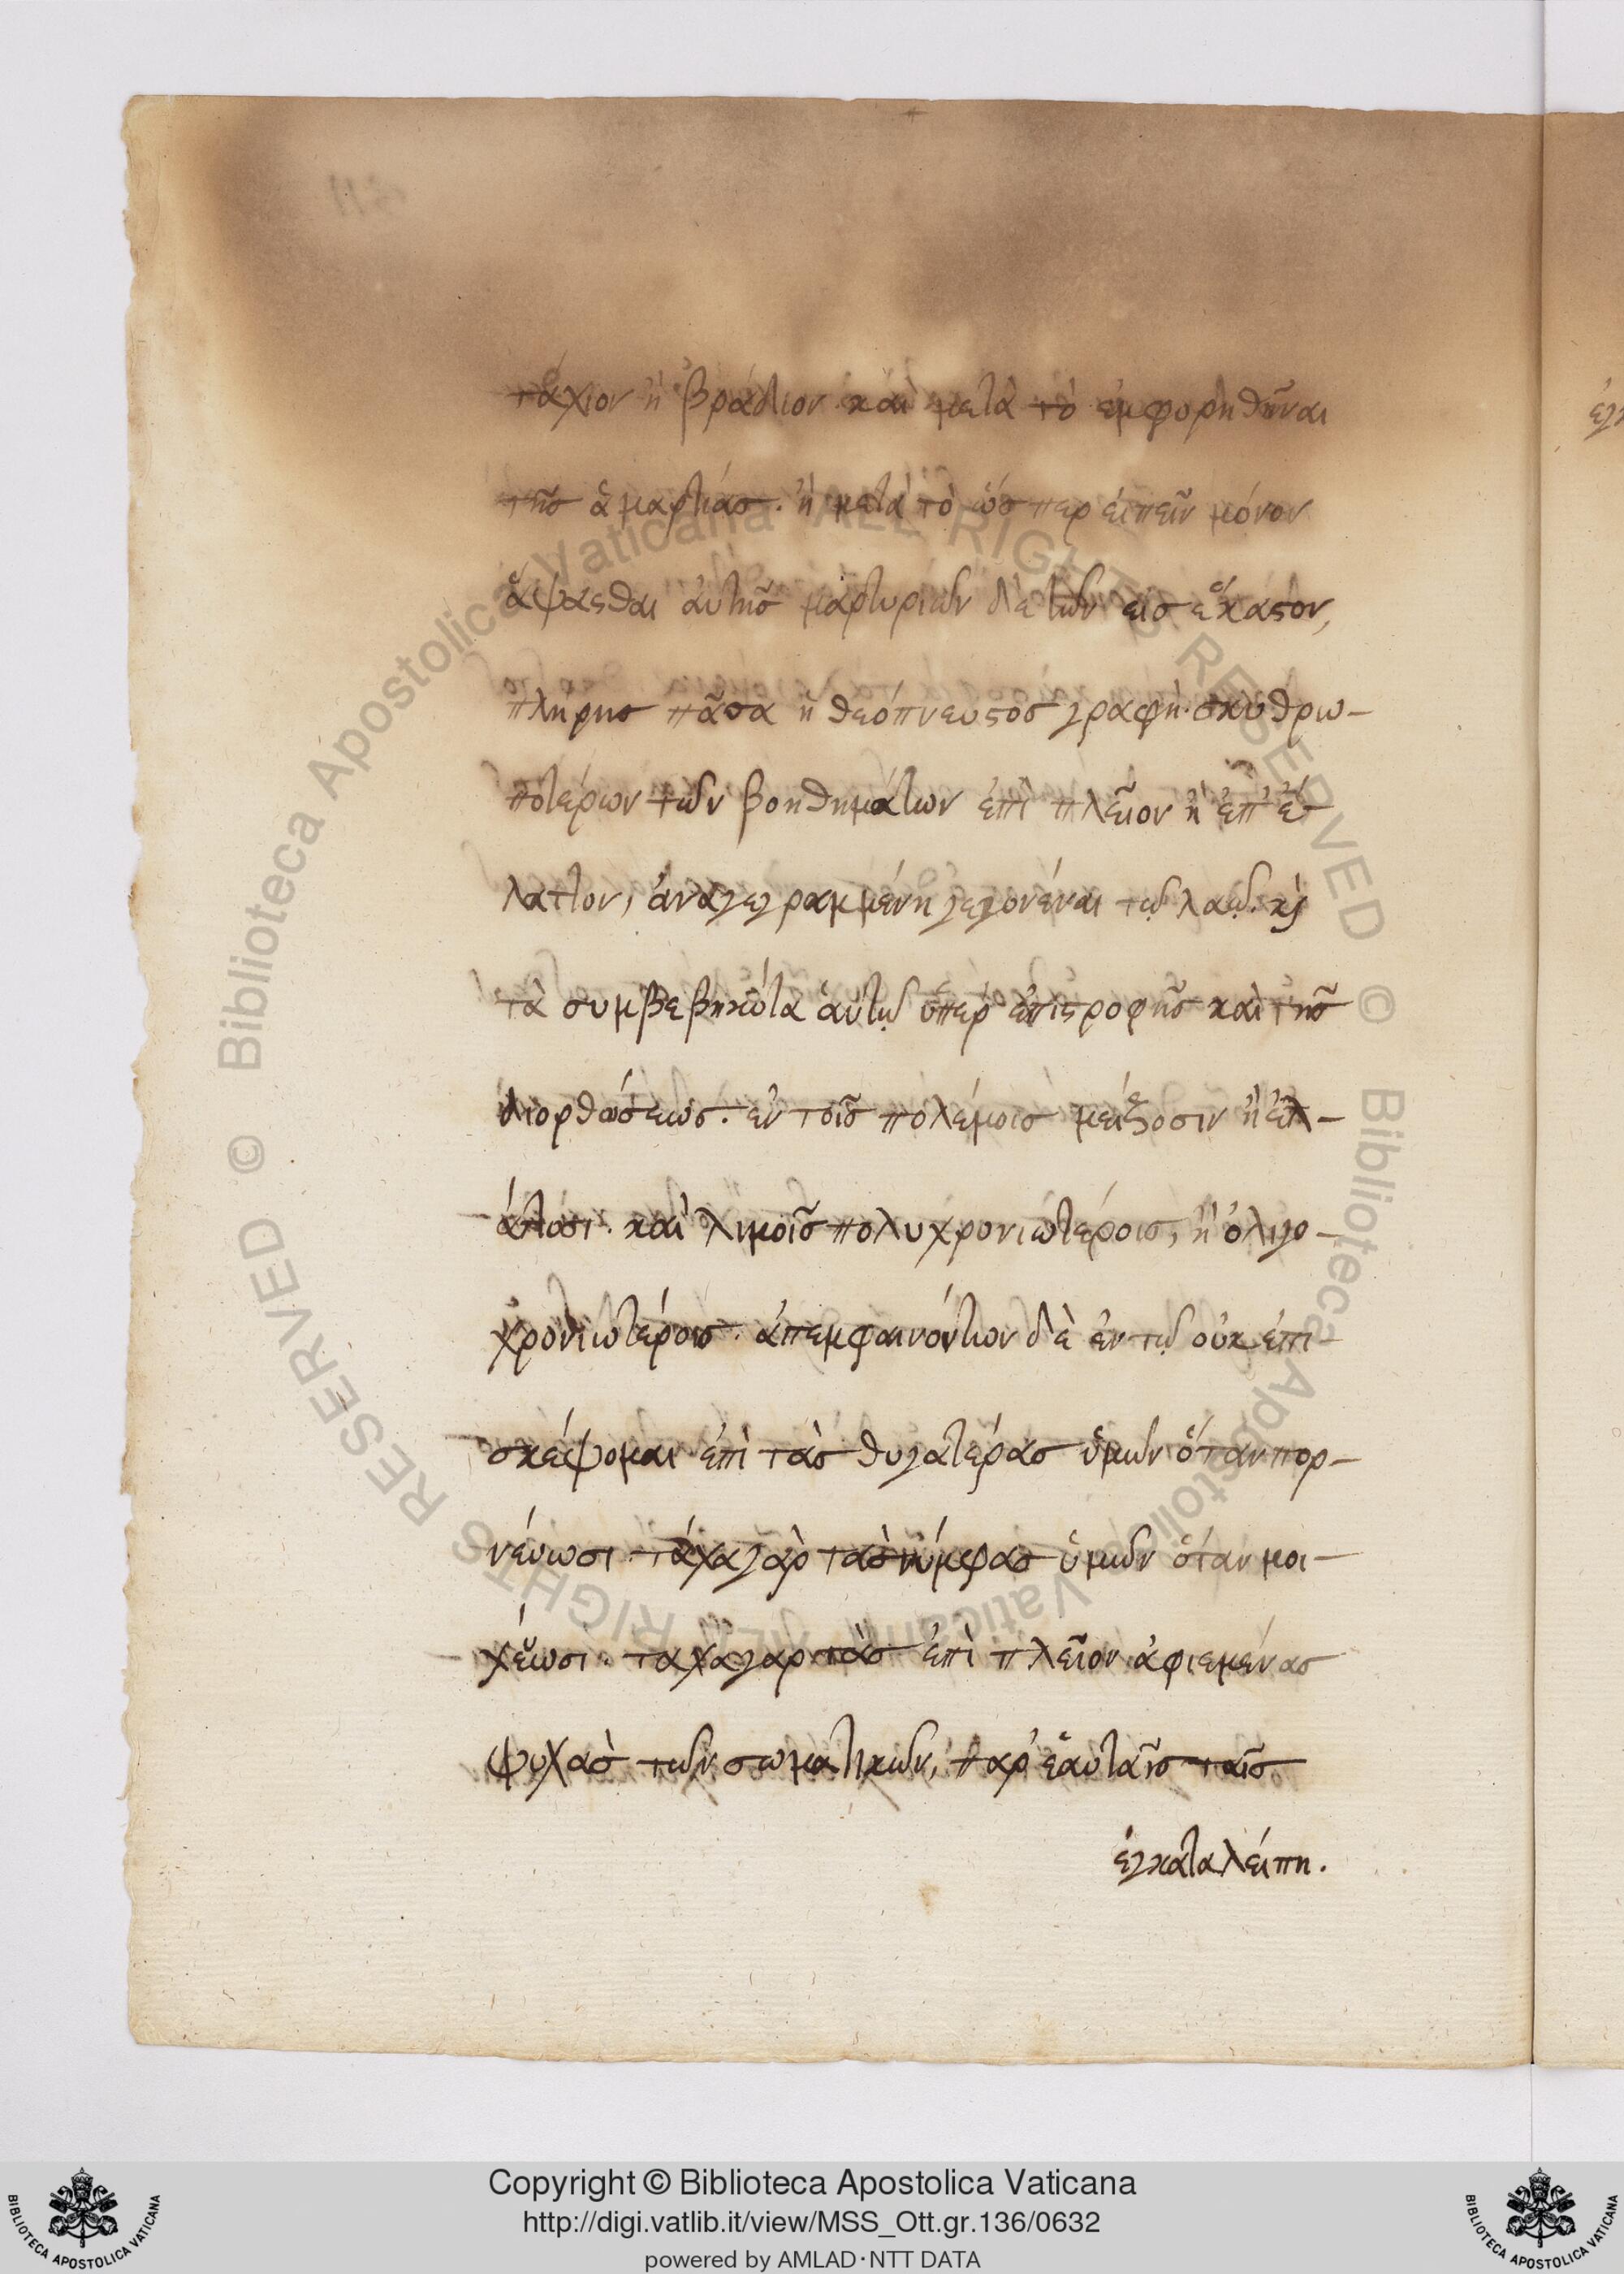 τάχιον ἢ βράδιον καὶ μετὰ τὸ ἐμφορηθῆναι
τῆς ἁμαρτίας. ἢ μετὰ τὸ ὥσπερ εἰπεῖν μόνον
ἅψασθαι αὐτῆς μαρτυριῶν δὲ τῶν εἰς ἕκαστον,
πλήρης πᾶσα ἡ θεόπνευστος γραφὴ. σκυθρω-
ποτέρων τῶν βοηθημάτων ἐπὶ πλεῖον ἢ ἐπ' ἔ-
λαττον, ἀναγεγραμμένη γεγονέναι τῷ λαῷ. κὶ
τὰ συμβεβηκότα αὐτῷ ὑπὲρ ἐπιστροφῆς καὶ τῆς
διορθώσεως. ἐν τοῖς πολέμοις μείζοσιν ἢ ἐλ-
άττοσι. καὶ λιμοῖς πολυχρονιωτέροις, ἢ ὀλιγο-
χρονιωτέροις. ἀπεμφαινόντων δὲ ἐν τῷ οὐκ ἐπι-
σκέψομαι ἐπὶ τὰς θυγατέρας ὑμῶν ὅταν πορ-
νεύωσι. τάχα γὰρ τὰς νύμφας ὑμῶν ὅταν μοι-
χεύωσι. τάχα γὰρ τὰς ἐπὶ πλεῖον ἀφιεμένας
ψυχὰς τῶν σωματικῶν, παρ' ἑαυταῖς ταῖς
ἐγκαταλείπη.
ἐγκ
Copyright © Biblioteca Apostolica Vaticana
http://digi.vatlib.it/view/MSS_Ott.gr.136/0632
powered by AMLAD·NTT DATA
BIBLIOTECA APOSTOLICA VATICANA
BIBLIOTECA APOSTOLICA VATICANA
© Biblioteca Apostolica Vaticana ALL RIGHTS RESERVED
© Biblioteca Apostolica Vaticana ALL RIGHTS RESERVED